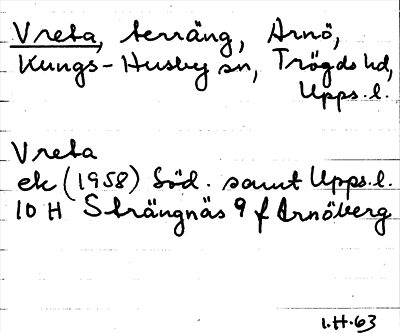 Vreta, terräng, Arnö,
Kungs-Husby sn, Trögds hd,
Upps. l.
Vreta
ek (1958) Söd. samt Upps. l.
10 H Strängnäs 9 f Arnöberg
1.H.63